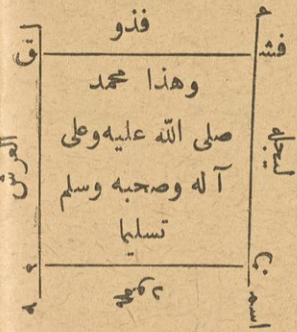 فذو
فشـ
ق
وهذا محمد
صلى الله عليه وعلى
آله وصحبه وسلم
تسليما
ليجله
العرش
محمود